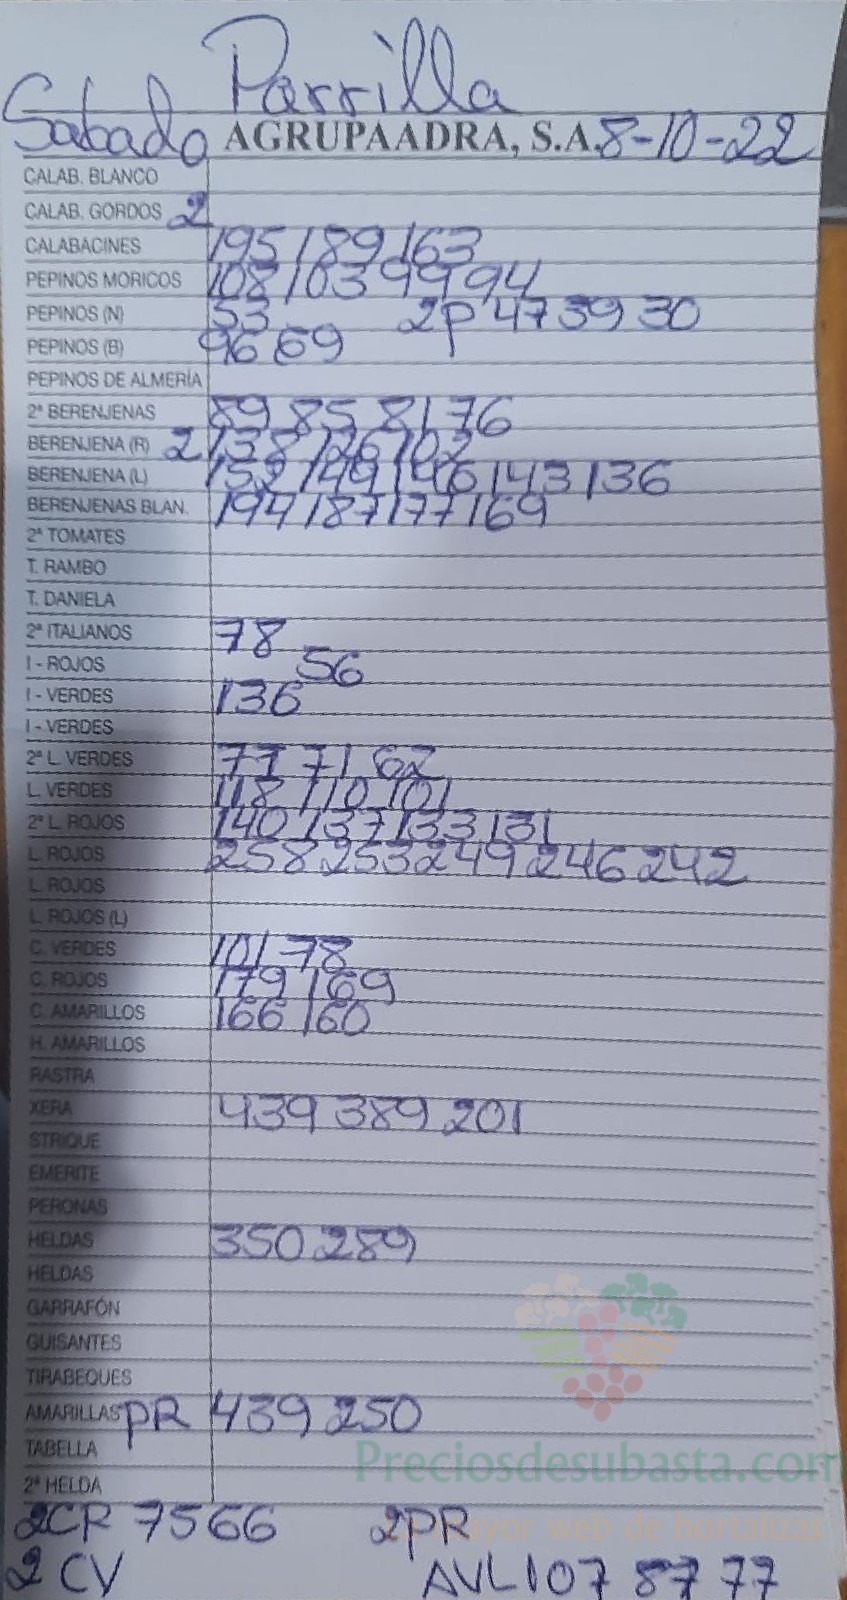 Parrilla
Sabado AGRUPAADRA, S.A. 8-10-22
CALAB. BLANCO
CALAB. GORDOS 2
CALABACINES 195 189 163
PEPINOS MORICOS 108 103 99 94
PEPINOS (N) 53 2P 47 39 30
PEPINOS (B) 96 69
PEPINOS DE ALMERÍA
2ª BERENJENAS 89 85 81 76
BERENJENA (R) 2 138 126 102
BERENJENA (L) 152 149 146 143 136
BERENJENAS BLAN. 194 187 177 169
2ª TOMATES
T. RAMBO
T. DANIELA
2ª ITALIANOS 78
I - ROJOS 56
I - VERDES 136
I - VERDES
2ª L. VERDES 77 71 62
L. VERDES 118 110 101
2ª L. ROJOS 140 137 133 131
L. ROJOS 258 253 249 246 242
L. ROJOS
L. ROJOS (L)
C. VERDES 101 78
C. ROJOS 179 169
C. AMARILLOS 166 160
H. AMARILLOS
RASTRA
XERA 439 389 201
STRIQUE
EMERITE
PERONAS
HELDAS 350 289
HELDAS
GARRAFÓN
GUISANTES
TIRABEQUES
AMARILLAS PR 439 250
TABELLA
Preciosdesubasta.com
2ª HELDA
2CR 75 66 2PR
La mayor web de hortalizas
2 CV AVL 107 87 77